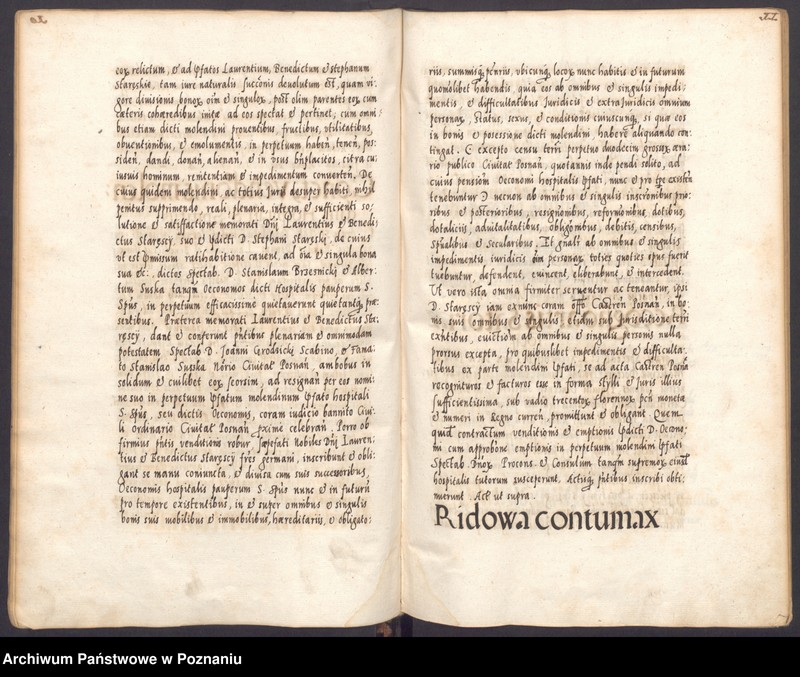 eoꝝ relictum, & ad ipsatos Laurentium, Benedictum & stephanum
staręskie, tam iure naturalis succonis devolutum est, quam vi-
gore divisionis bonoꝝ oim & singuloꝝ, post olim parentes eoꝝ cum
caeteris cohaeredibus initae ad eos spectat & pertinet, cum omni-
bus etiam dicti molendini proventibus, fructibus, utilitatibus,
obventionibus, & emolumentis in perpetuum haben, tenen, pos-
siden, dandi, donan, ahenan, & in usus bnplacitos, citra cu-
iusuis hominum, renitentiam & impedimentum converten. De
cuius quidem molendini, ac totius Juris desuper habiti, nihil
penitus supprimendo, reali, plenaria, integra, & sufficienti so-
lutione & satisfactione memorati Dni Laurentius & Benedi-
ctus Staręscy, suo & ipdicti D. Stephani Staręski, de cuius
ut est pmissum ratihabitione cavent, ad oia & singula bona
sua &c: dictos Spectab. D. Stanislaum Brzesnicki & Alber-
tum Suska tanqm Oeconomos dicti Hospitalis pauperum S.
Spus, in perpetuum efficacissime quietaverunt quietantq, prae-
sentibus. Praeterea memorati Laurentius & Benedictus Sta-
ręscy, dant & conferunt pntibus plenariam & ommimodam
potestatem Spectab D. Joanni Grodzicki Scabino, & Fama-
to Stanislao Suska Norio Civitat Posnan, ambobus in
solidum & cuilibet eoꝝ seorsim, ad resignan per eos nomi-
ne suo in perpetuum ipsatum molendinum ipsato hospitali
S. Spus, seu dictis Oeconomis, coram iudicio bannito Civi-
li ordinario Civitat Posnan pxime celebran. Porro ob
firmius pntis venditionis robur, supefati Nobiles Dni Lauren-
tius & Benedictus Staręscy fres germani, inscribunt & obli-
gant se manu coniuncta, & divisa cum suis successoribus,
Oeconomis hospitalis pauperum S. Spus nunc & in futuru
pro tempore existentibus, in & super omnibus & singulis
bonis suis mobilibus & immobilibus, haereditariis, & obligato-
riis, summisq penriis, ubicunq locoꝝ nunc habitis & in futurum
quomolibet habendis, quia eos ab omnibus & singulis impedi-
mentis, & difficultatibus Juridicis & extraJuridicis omnium
personaꝝ, status, sexus, & conditionis cuiuscunq, si quae eos
in bonis & posesione dicti molendini habere aliquando con-
tingat. Excepto censu terri perpetuo duodecim grossoꝝ aera-
rio publico Civitat Posnan, quotannis inde pendi solito, ad
cuius pensiom Oeconomi hospitalis ipsati, nunc & pro tpe existen
tenebuntur necnon ab omnibus & singulis inscronibus prio-
ribus & posterioribus, resignonibus, reformonibus, dotibus,
dotaliciis, advitalitatibus, obligonibus, debitis, censibus,
spualibus & secularibus, Et gnalr ab omnibus & singulis
impedimentis iuridicis oim personaꝝ, toties quoties opus fuerit
tuebuntur, defendent, evincent, eliberabunt, & intercedent.
Ut vero ista omnia firmiter serventur ac teneantur, ipsi
D. Staręscy iam exnunc coram offo Castren Posnan, in bo-
nis suis omnibus & singulis etiam sub iurisditione terri
exntibus, evictiom ab omnibus & singulis personis nulla
prorsus excepta, pro quibuslibet impedimentis & difficulta-
tibus ex parte molendini ipsati, se ad acta Castren Posna
recognituros & facturos esse in forma styli & iuris illius
sufficientissima, sub vadio trecentoꝝ florenoꝝ pcn moneta
& numeri in Regno curren, promittunt & obligant. Quem-
quid contractum venditionis & emptionis ipdicti D. Oecono-
mi cum approbone emptionis in perpetuum molendini ipsati
Spectab. Dnoꝝ Procons. & Consulum tanqm supremoꝝ eiusd
hospitalis tutorum susceperunt, Actisq pntibus inscribi obti-
nuerunt. Act ut supra.
Ridowa contumax
Archiwum Państwowe w Poznaniu